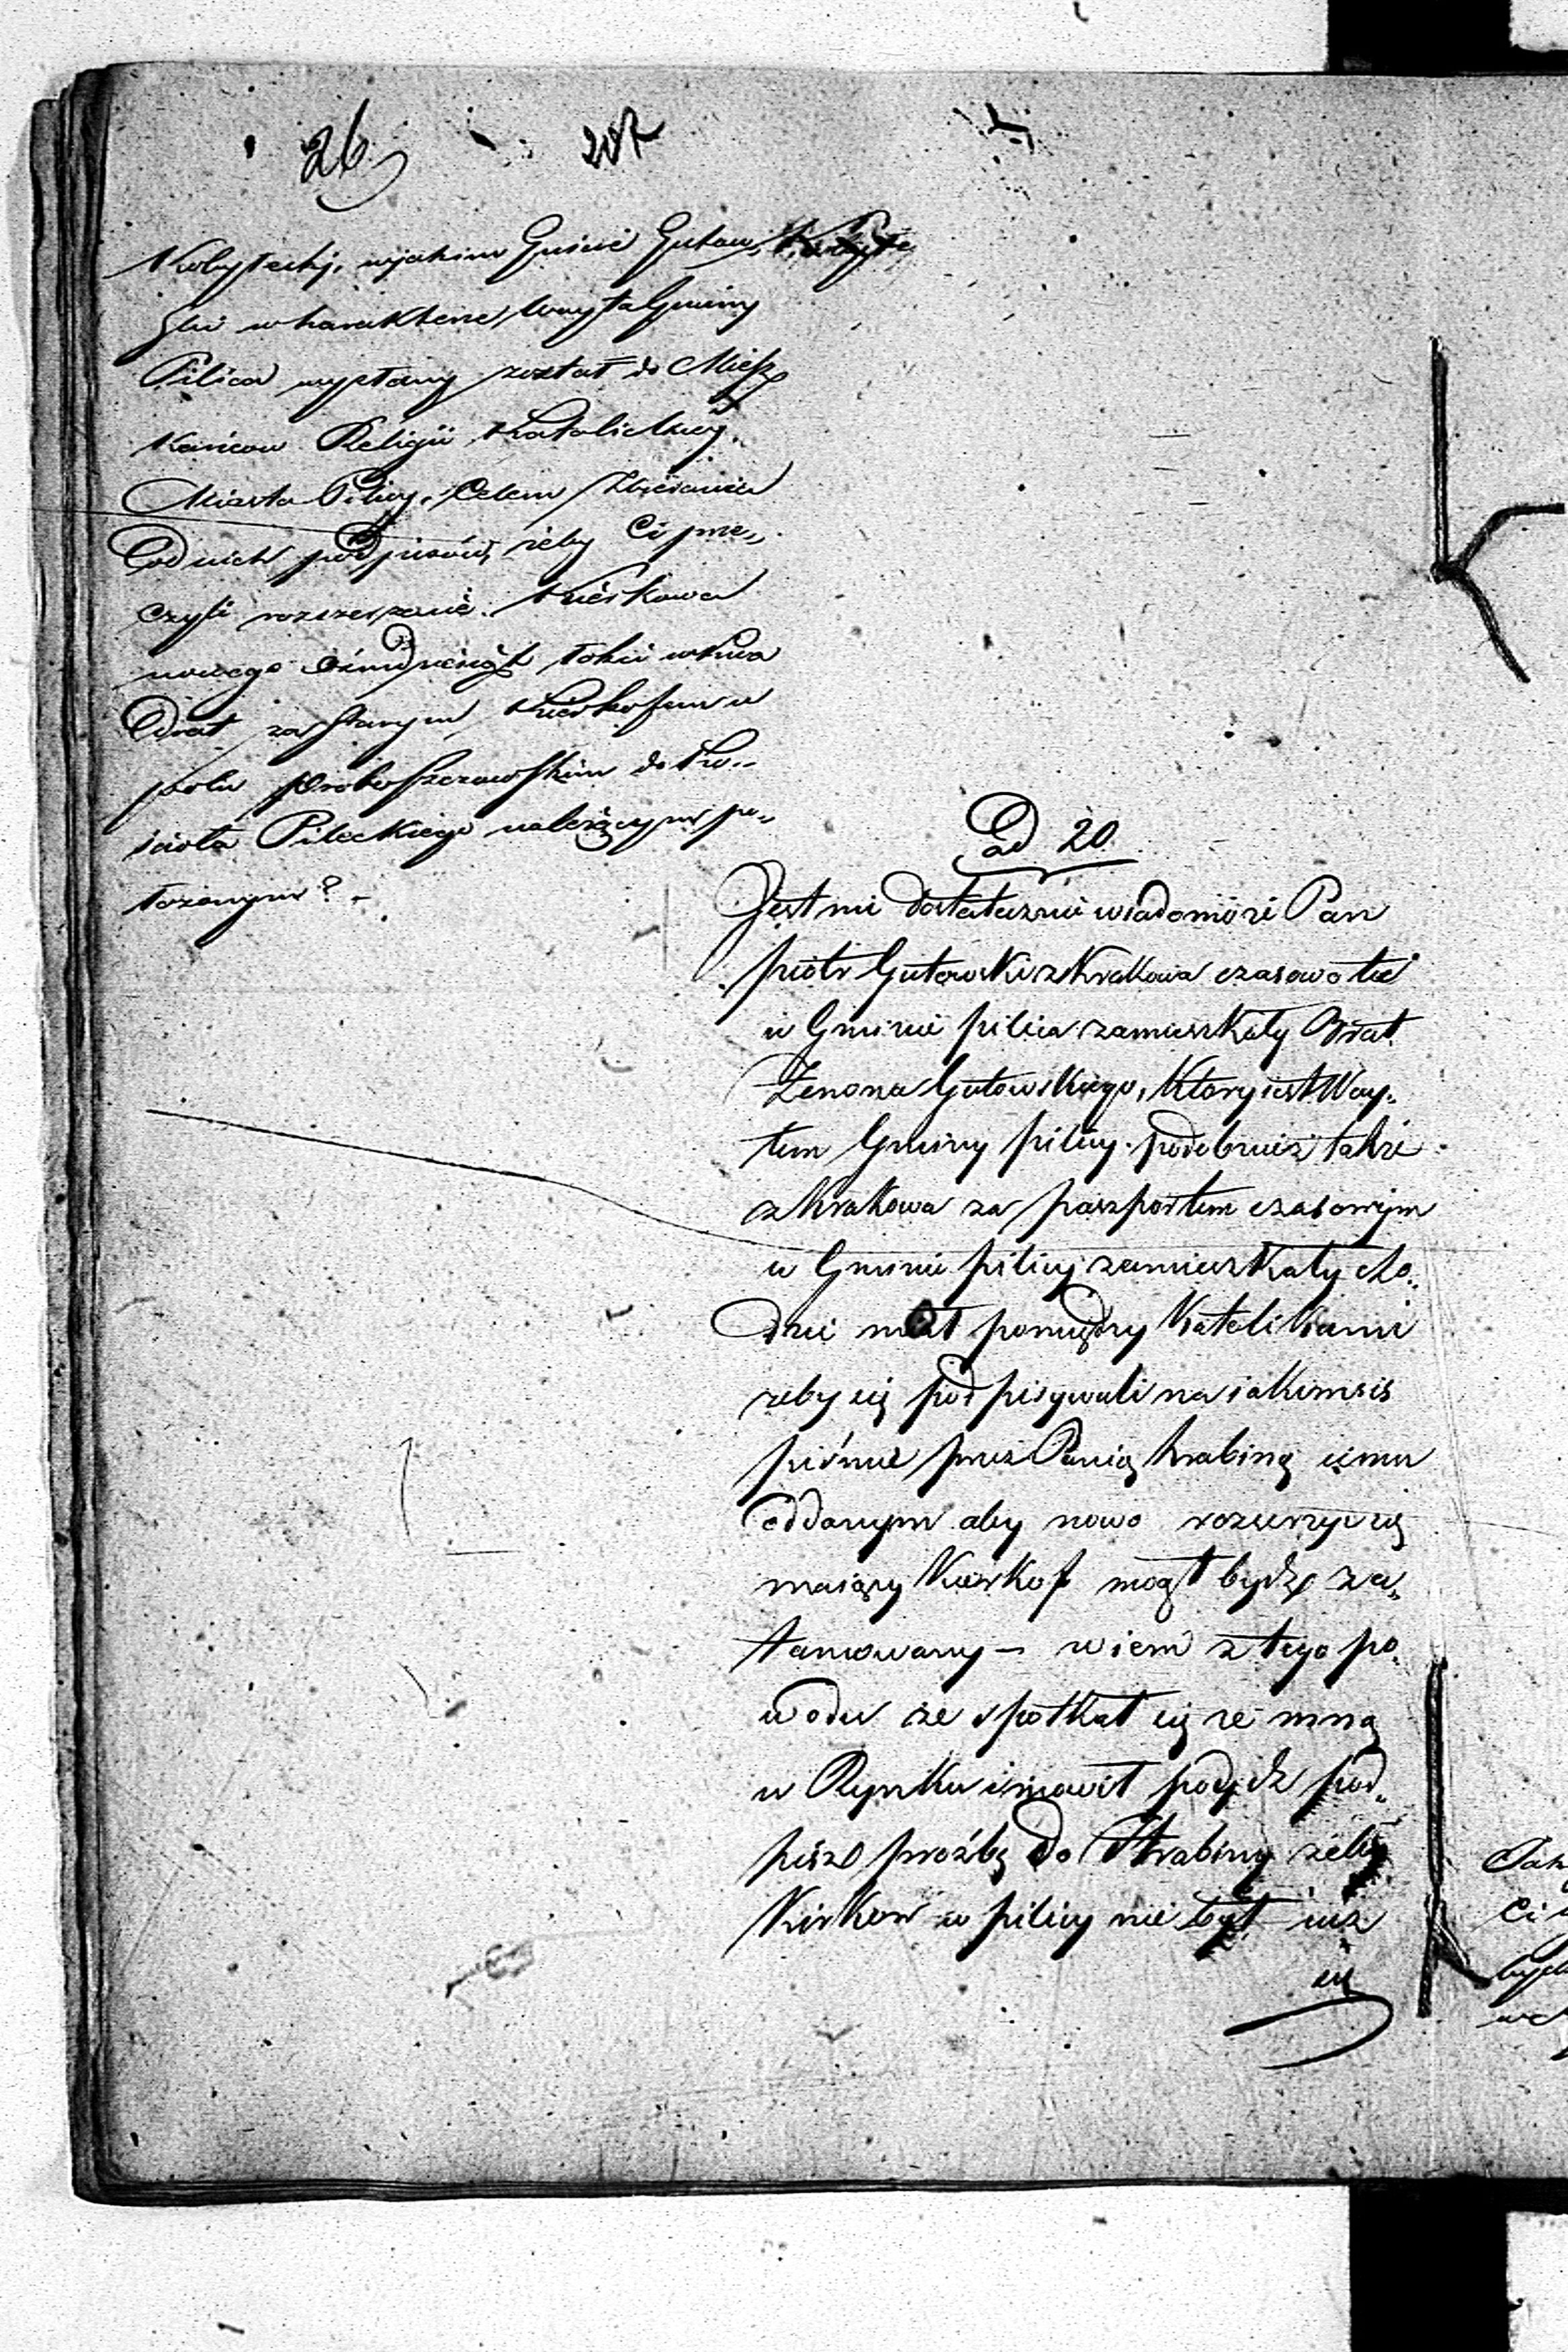 26
207
Kobyłecki, w jakim Guście Gutow
ski wharakterze Wayta Gminy
Pilica wysłany został do Miesz
kańcow Religii Katolickiey
Miasta Pilicy, Celem Zbierania
Od nich podpisów, żeby Ci prze„
czyli rozszerzenie Kierkowa
nowego Ośmdziesiąt łokci w kwa
Drat za starym Kierkofem w
polu Proboszczowskim do Ko„
ścioła Pileckiego należącym po„
łożonym? –
Ad 20
Jest mi dostatecznie wiadomo że Pan
piotr Gutowski z Krakowa czasowo też
w Gminie pilica zamieszkały Brat
Zenona Gutowskiego, Ktory iest Way„
tem Gminy pilicy podobnież także
z Krakowa za paszportem czasowym
w Gminie pilicy zamieszkały cho„
dzić miał pomiędzy Katolikami
żeby się podpisywali na iakimsis
piśmie przez Panią hrabinę iemu
oddanym aby nowo rozszerzyć się
maiący Kierkof mogł bydź za„
tamowany – wiem z tego po„
wodu że spotkał się ze mną
w Rynku i mowił podydz pod„
pisz proźbę do Hrabiny żeby
Kirkow w pilicy nie był iuż
się